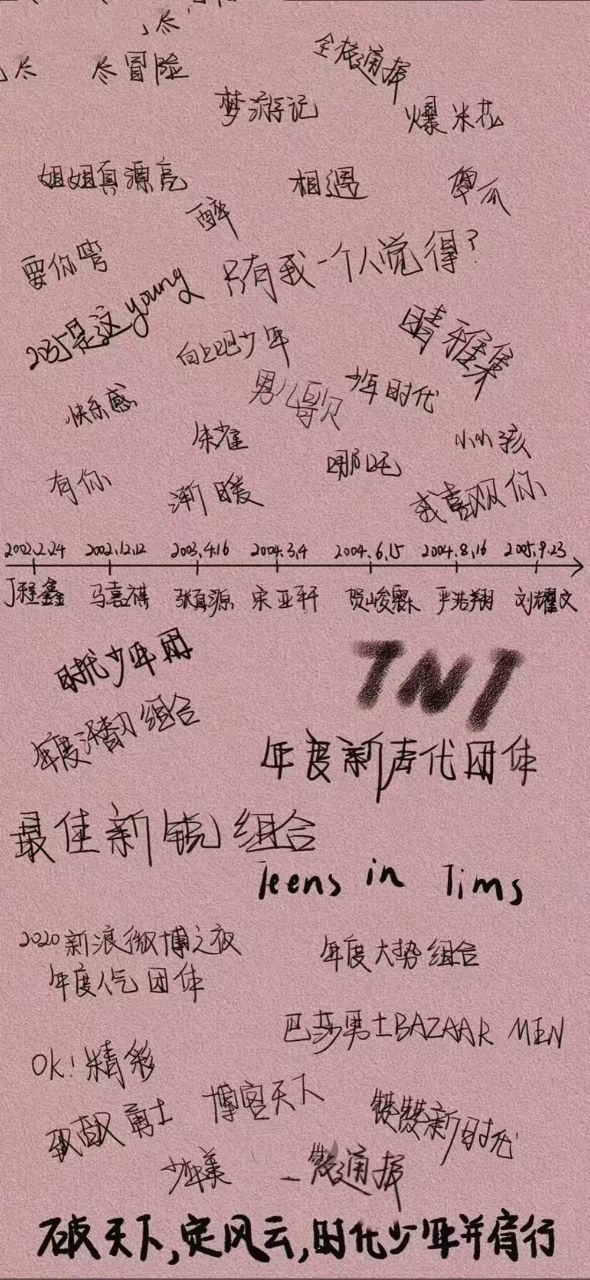 尽
尽
尽冒险
全校通报
梦游记
爆米花
姐姐真漂亮
相遇
傻瓜
醉
要你管
只有我一个人觉得?
2035是这young
向上吧少年
晴雅集
男儿歌
少年时代
快乐感
朱雀
小小孩
哪吒
有你
渐暖
我喜欢你
2002.2.24
2002.12.12
2003.4.16
2004.3.4
2004.6.15
2004.8.16
2005.9.23
丁程鑫
马嘉祺
张真源
宋亚轩
贺峻霖
严浩翔
刘耀文
时代少年团
TNT
年度潜力组合
年度新声代团体
最佳新锐组合
Teens in Tims
2020新浪微博之夜
年度人气团体
年度大势组合
巴莎男士BAZAAR MEN
OK!精彩
致敬勇士
博客天下
少年美
通报
破天下,定风云,时代少年并肩行